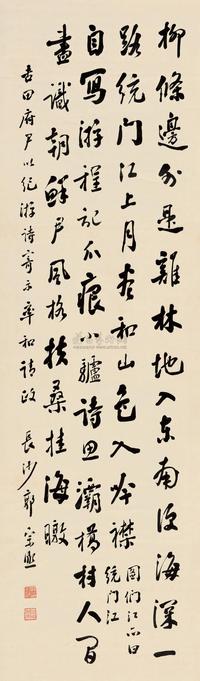 柳條邊外是雞林地入東南海深一
路統門江上月和山色入吟襟
圖們江亦曰
統門江
自寫游程記爪痕小驢詩思灞橋村人間
盡識朝鮮尹風格扶桑挂海暾
吉田府尹以紀游詩寄示率和請政 長沙郭宗熙